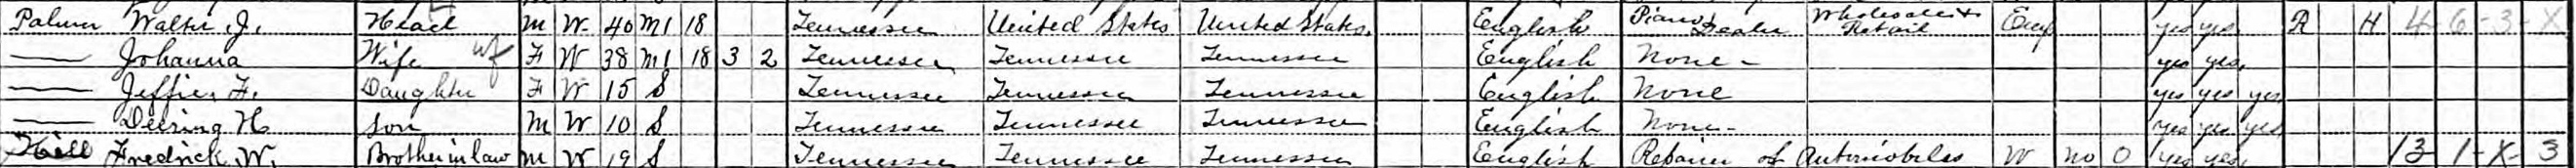 Palmer Walter J. Head M W 40 M1 18 Tennessee United States United States English Piano Dealer Wholesale & Retail Emp yes yes R H 4-6-3-X
— Johanna Wife wf F W 38 M1 18 3 2 Tennessee Tennessee Tennessee English None - yes yes
— Jeffie F. Daughter F W 15 S Tennessee Tennessee Tennessee English None yes yes yes
— Deering H Son M W 10 S Tennessee Tennessee Tennessee English None - yes yes yes
Hill Fredrick W. Brother in law M W 19 S Tennessee Tennessee Tennessee English Repairer of Automobiles W no 0 yes yes 13-1-X-3